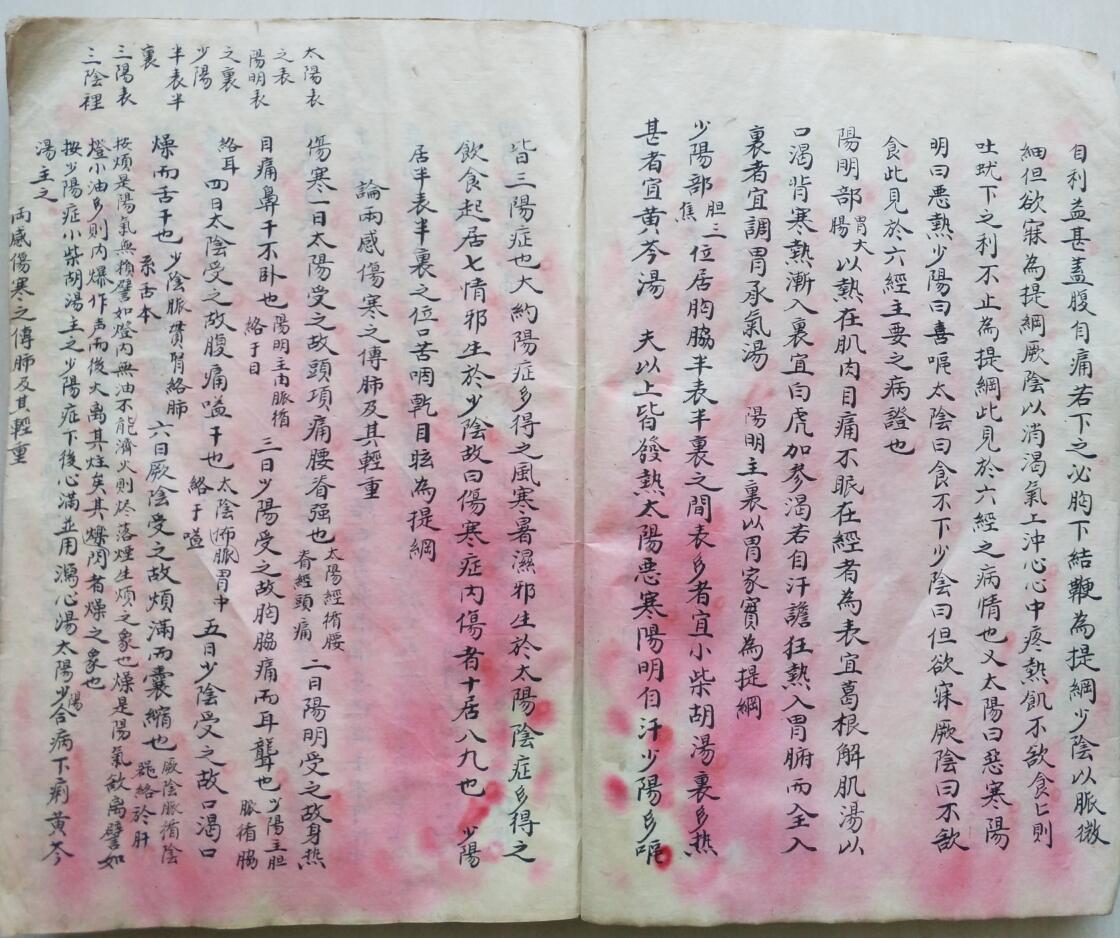 自利益甚蓋腹自痛若下之必胸下結鞕為提綱少陰以脈微
細但欲寐為提綱厥陰以消渴氣上沖心心中疼熱飢不欲食匕則
吐蚘下之利不止為提綱此見於六經之病情也又太陽曰惡寒陽
明曰惡熱少陽曰喜嘔太陰曰食不下少陰曰但欲寐厥陰曰不欲
食此見於六經主要之病證也
陽明部胃大腸以熱在肌肉目痛不眠在經者為表宜葛根解肌湯以
口渴背寒熱漸入裏宜白虎加參渴若自汗譫狂熱入胃腑而全入
裏者宜調胃承氣湯 陽明主裏以胃家實為提綱
少陽部胆三焦位居胸脇半表半裏之間表多者宜小柴胡湯裏多熱
甚者宜黃芩湯 夫以上皆發熱太陽惡寒陽明自汗少陽多嘔
皆三陽症也大約陽症多得之風寒暑濕邪生於太陽陰症多得之
飲食起居七情邪生於少陰故曰傷寒症內傷者十居八九也 少陽
居半表半裏之位口苦咽乾目眩為提綱
論兩感傷寒之傳肺及其輕重
太陽表
之表
陽明表
之裏
少陽
半表半
裏
三陽表
三陰裡
傷寒一日太陽受之故頭項痛腰脊强也太陽經循腰脊經頭痛二日陽明受之故身熱
目痛鼻干不卧也陽明主肉脈循絡于目三日少陽受之故胸脇痛而耳聾也少陽主胆脈循脇
絡耳四日太陰受之故腹痛嗌干也太陰怖脈胃中絡于嗌五日少陰受之故口渴口
燥而舌干也少陰脈貫腎絡肺系舌本六日厥陰受之故煩滿而囊縮也厥陰脈循陰器絡於肝
按煩是陽氣無賴譬如燈內無油不能濟火則於落煙生煩之象也燥是陽氣欲离譬如
燈小油多則內爆作声而後火离其炷矣其爍閃者燥之象也
按少陽症小柴胡湯主之少陽症下後心滿並用瀉心湯太陽少陽合病下痢黃芩
湯主之
兩感傷寒之傳肺及其輕重